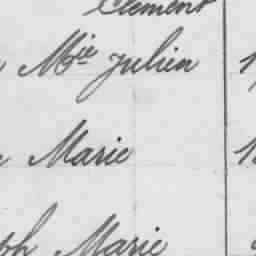 Clément
Mie Julien
Marie
ph Marie